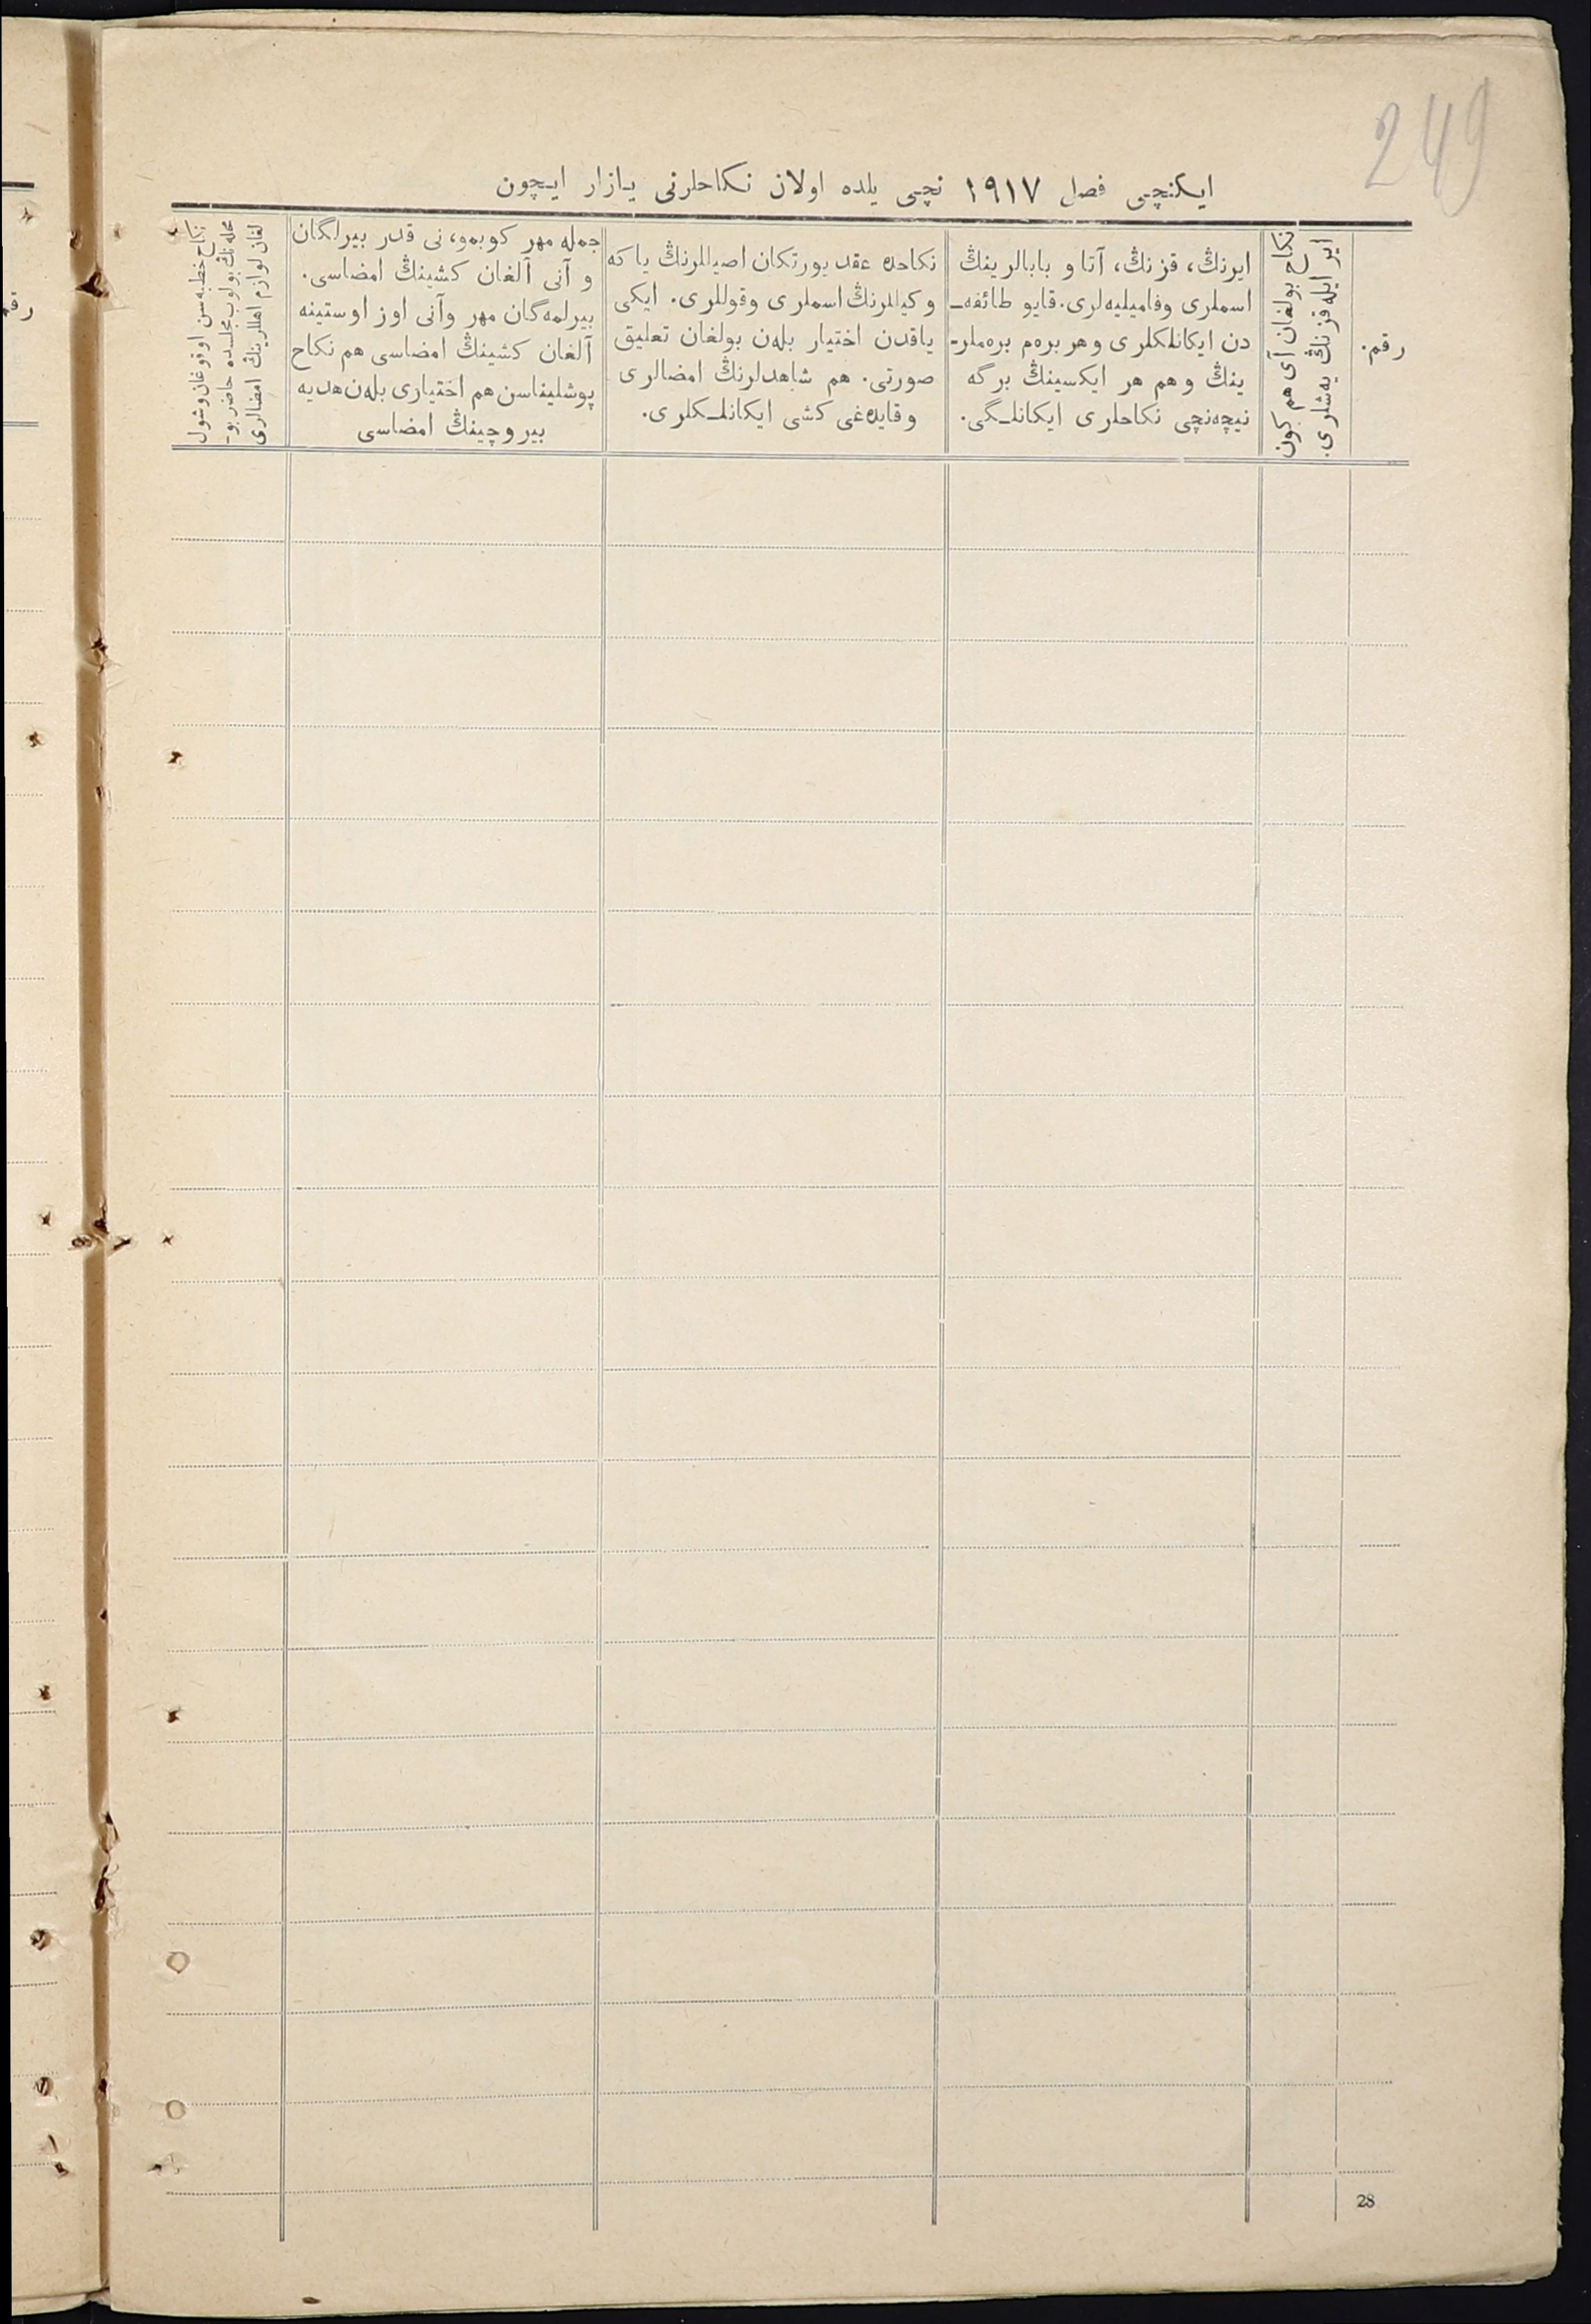 249
ایکنچی فصل ١٩١٧ نچی یلده اولان نکاحلرنی یازار ایچون
رقم.
نکاح بولغان آی هم کون
ایر ایله قزنڭ یه‌شلری.
ایرنڭ، قزنڭ، آتا و بابالرینڭ
اسملری وفامیلیه‌لری. قایو طائفه‌ـ
دن ایکانلکلری وهر بره‌م بره‌ملرـ
ینڭ وهم هر ایکسینڭ برگه
نیچه‌نچی نکاحلری ایکانلـگی.
نکاحده عقد یورتکان اصیللرنڭ یا که
وکیللرنڭ اسملری وقوللری. ایکی
یاقدن اختیار بله‌ن بولغان تعلیق
صورتی. هم شاهدلرنڭ امضالری
وقایده‌غی کشی ایکانلـکلری.
جمله مهر کوبمو، نی قدر بیرلگان
و آنی آلغان کشینڭ امضاسی.
بیرلمه‌گان مهر وآنی اوز اوستینه
آلغان کشینڭ امضاسی هم نکاح
پوشلیناسن هم اختیاری بله‌ن هدیه
بیروچینڭ امضاسی
نکاح خطبه‌سن اوقوغان وشول
محله‌نڭ بولوب مجلسده حاضر بوـ
لغان لوازم اهللرینڭ امضالری
28